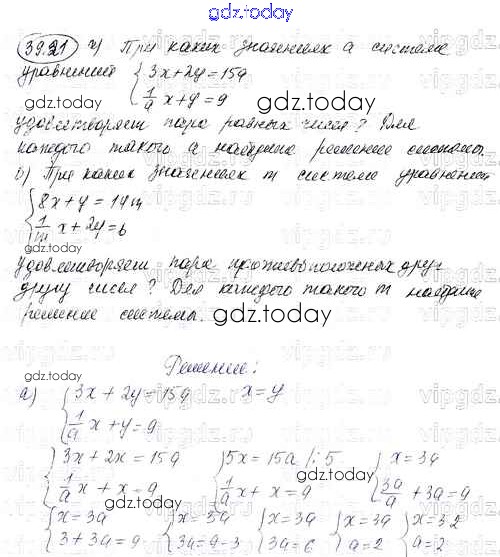 gdz.today
39.21 а) При каких значениях а система
уравнений { 3x+2y=15a
1/a x+y=9
gdz.today
gdz.today
удовлетворяет пара равных чисел? Для
каждого такого а найдите решение системы.
б) При каких значениях m система уравнений
{ 8x+y=14m
1/m x+2y=6
gdz.today
удовлетворяет пара противоположных друг
другу чисел? Для каждого такого m найдите
решение системы.
gdz.today
Решение:
gdz.today
а) { 3x+2y=15a x=y
1/a x+y=9
{ 3x+2x=15a { 5x=15a |:5 { x=3a
1/a x+x=9 1/a x+x=9 3a/a+3a=9
gdz.today
{ x=3a { x=3a { x=3a { x=3a { x=3·2
3+3a=9 3a=9-3 3a=6 a=2 a=2